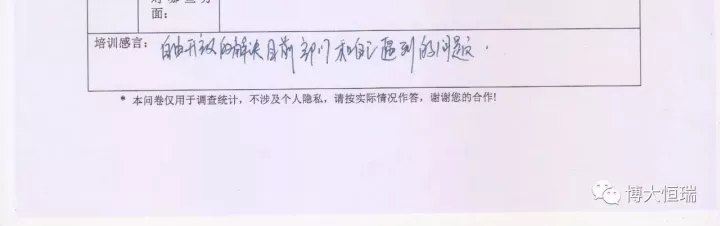 面：
培训感言：自由开放的解决目前部门和自己遇到的问题。
* 本问卷仅用于调查统计，不涉及个人隐私，请按实际情况作答，谢谢您的合作!
博大恒瑞